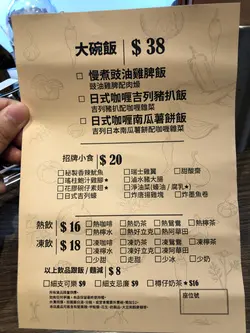 大碗飯 $38
□ 慢煮豉油雞脾飯
豉油雞脾配肉燥
□ 日式咖喱吉列豬扒飯
吉列豬扒配咖喱雜菜
□ 日式咖喱南瓜薯餅飯
吉列日本南瓜薯餅配咖喱雜菜
招牌小食 $20
□ 秘製香辣魷魚 □ 瑞士雞翼 □ 甜酸齋
□ 瑤柱鮑汁雞腳★ □ 滷水豬大腸
□ 花膠碗仔素翅★ □ 淨油菜(蠔油 / 腐乳★)
□ 日式吉列蠔 □ 炸唐揚雞塊 □ 炸墨魚卷
熱飲 $16 □ 熱咖啡 □ 熱奶茶 □ 熱鴛鴦 □ 熱檸茶
□ 熱檸水 □ 熱好立克 □ 熱阿華田
凍飲 $18 □ 凍咖啡 □ 凍奶茶 □ 凍鴛鴦 □ 凍檸茶
□ 凍檸水 □ 凍好立克 □ 凍阿華田
□ 走甜 □ 少甜 □ 少冰 □ 少奶
以上飲品跟飯 / 麵減 $8
□ 細支可樂 $9 □ 細支忌廉 $9 □ 樽仔奶茶★$16
座位號